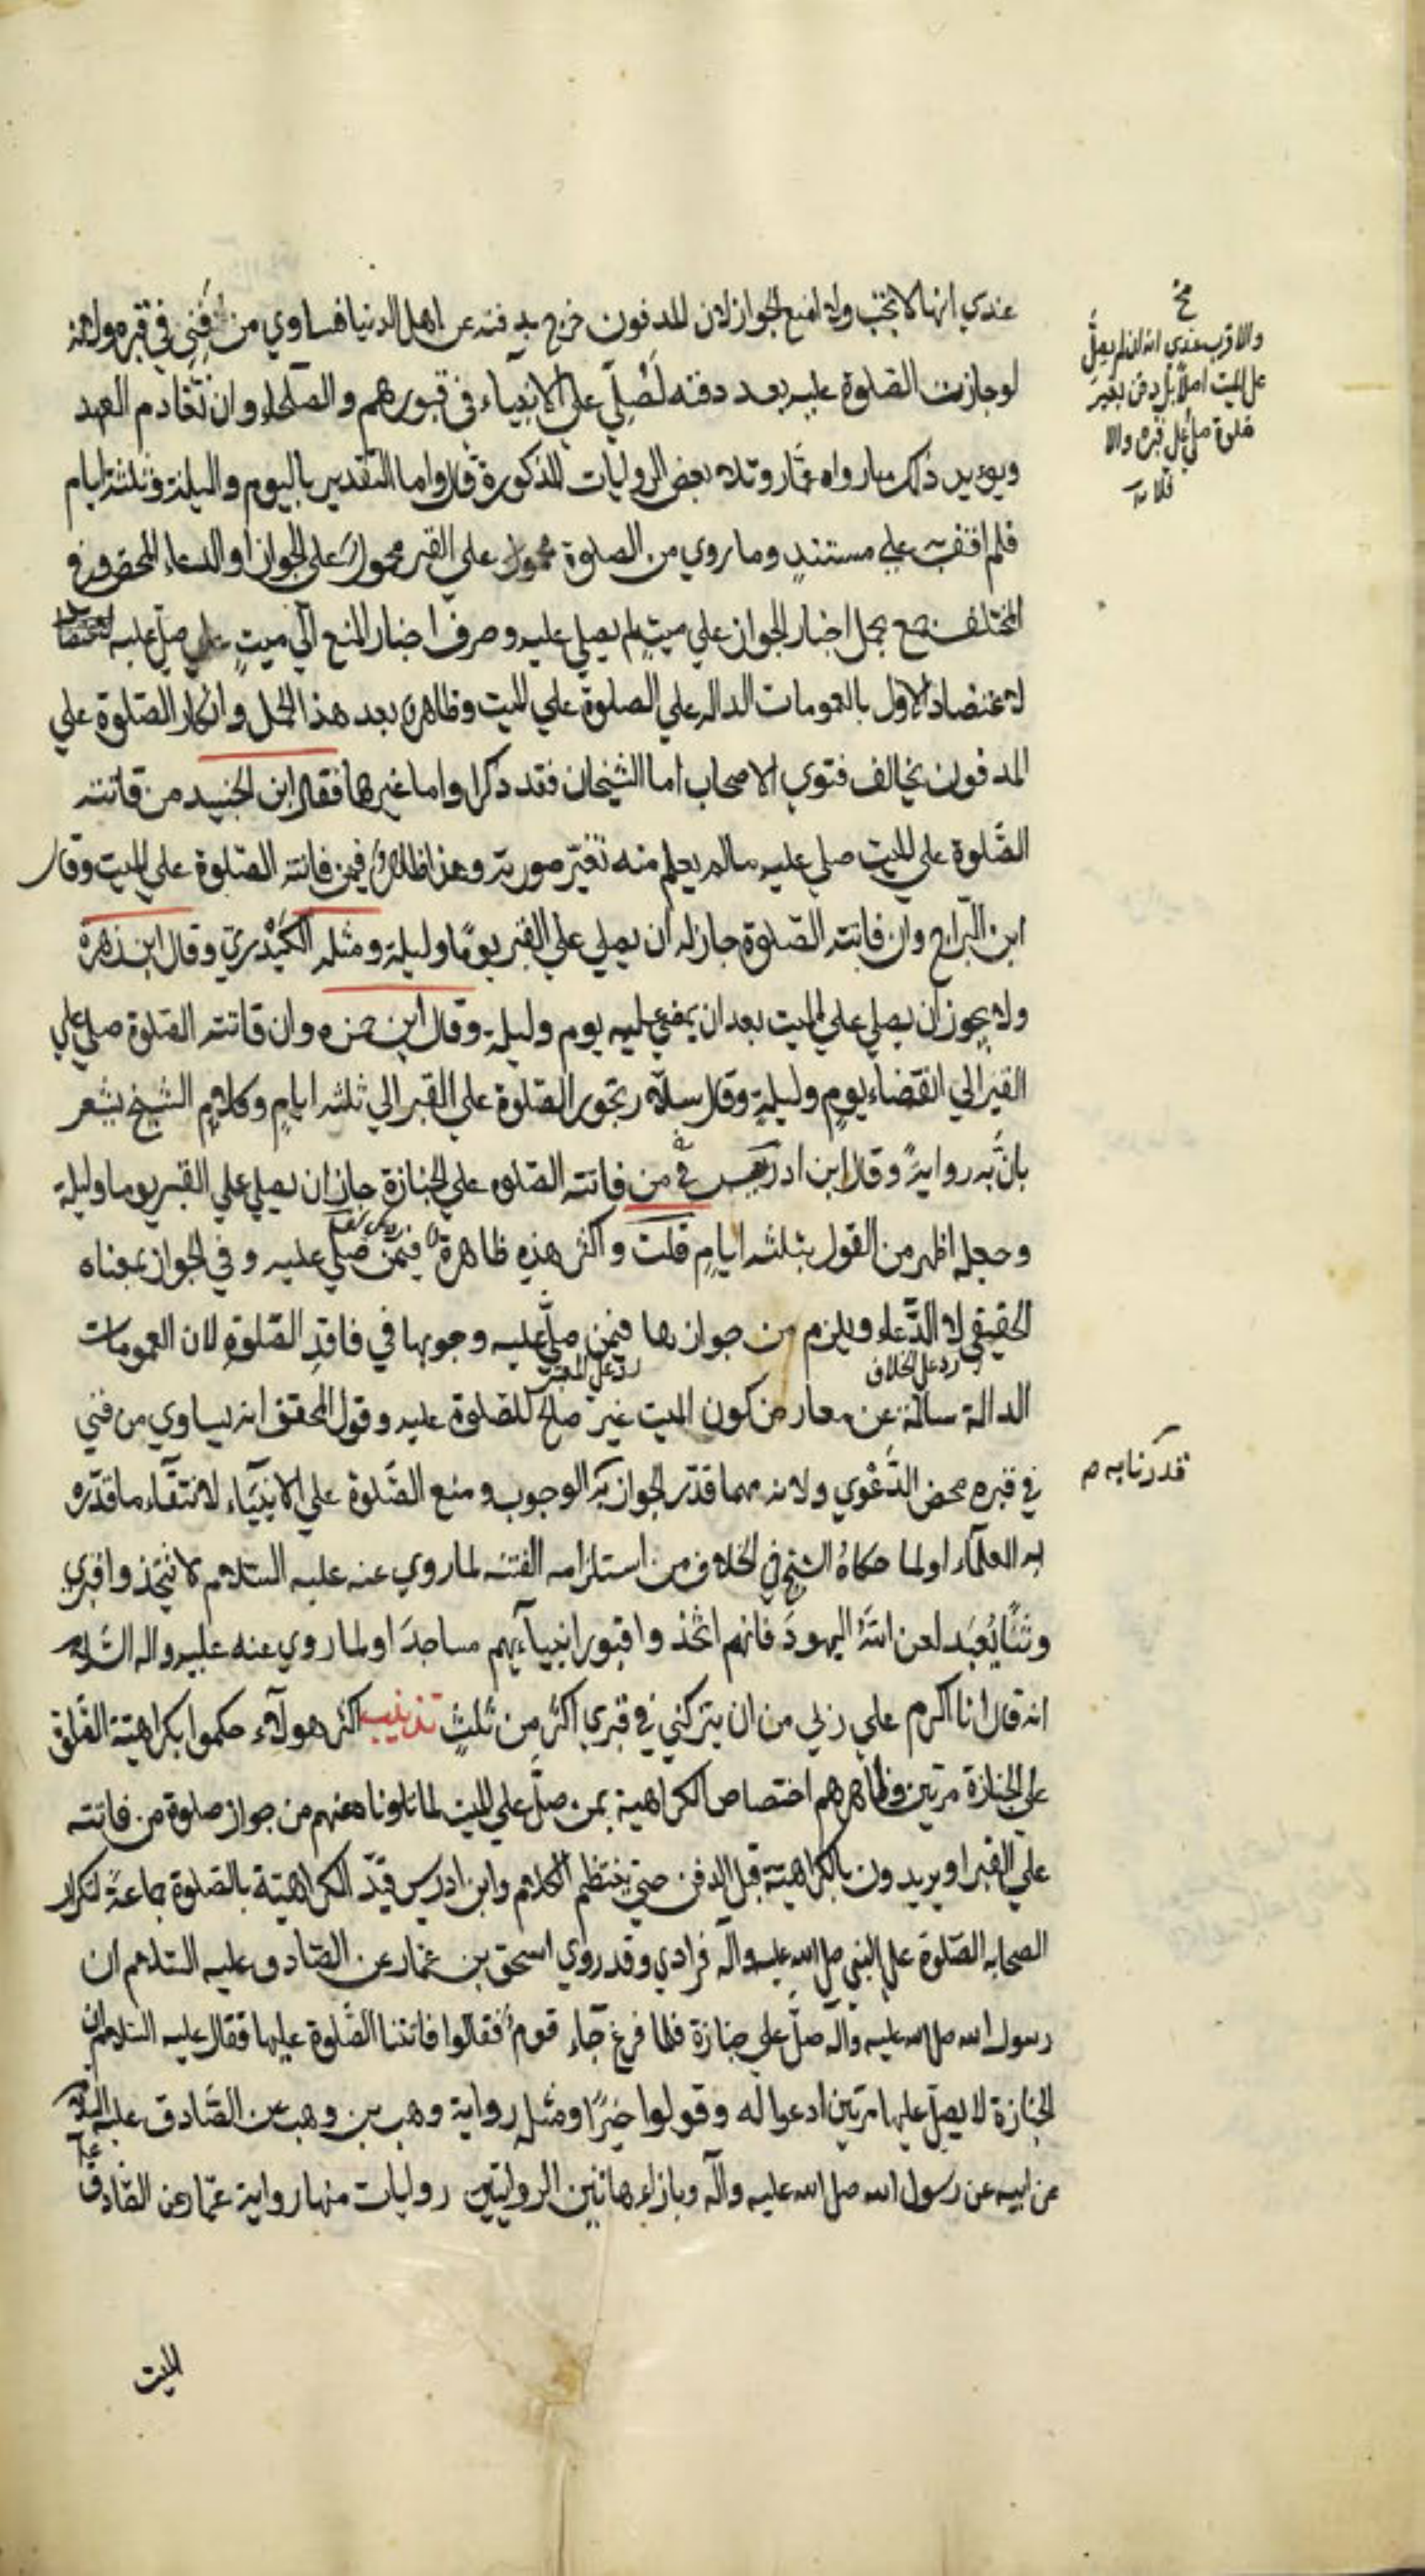 عندي انها لا تجب ولا امنع الجواز لان المدفون خرج بدفنه عن اهل الدنيا فساوي من فني في قبره ولانه
لو جازت الصلوة عليه بعد دفنه لصلي علي الانبياء في قبورهم والصلحاء وان تقادم العهد
ويؤيد ذلك ما رواه عمار وتلا بعض الروايات المذكورة قال واما التقدير باليوم والليلة وثلثة ايام
فلم اقف علي مستند وما روي من الصلوة علي القبر محمول علي الجواز او الدعاء المحض وفي
المختلف جمع بحمل اخبار الجواز علي ميت لم يصلي عليه وصرف اخبار المنع الي ميت صلي عليه
لاعتضاد الاول بالعمومات الداله علي الصلوة علي الميت وظاهر بعد هذا الحمل وانكار الصلوة علي
المدفون يخالف فتوي الاصحاب اما الشيخان فقد ذكرا واما غيرهما فقال ابن الجنيد من فاتته
الصلوة علي الميت صلي عليه ما لم يعلم منه تغير صورته وهذا ظاهر فيمن فاتته الصلوة علي الميت وقال
ابن البراج وان فاتته الصلوة جاز له ان يصلي علي القبر يوما وليلة ومثله الكيدري وقال ابن زهرة
ولا يجوز ان يصلي علي الميت بعد ان يمضي عليه يوم وليلة وقال ابن حمزه وان فاتته الصلوة صلي علي
القبر الي انقضاء يوم وليلة وقال سلار تجوز الصلوة علي القبر الي ثلثه ايام وكلام الشيخ يشعر
بان به رواية وقال ابن ادريس في من فاتته الصلوه علي الجنازة جاز ان يصلي علي القبر يوما وليلة
وجعله اظهر من القول بثلثه ايام قلت واكثر هذه ظاهرة فيمن صلي عليه وفي الجواز بمعناه
الحقيقي لا الدعاء ويلزم من جوازها فيمن صلي عليه وجوبها في فاقد الصلوة لان العمومات
رد علي الخلاف
رد علي المعتبر
الدالة سالمة عن معارض كون الميت غير صالح للصلوة عليه وقول المحقق انه يساوي من فني
في قبره محض الدعوي ولانه مهما قدر الجواز الوجوب ومنع الصلوة علي الانبياء لانتفاء ما قدره
به العلماء او لما حكاه الشيخ في الخلاف من استلزامه الفتنه لما روي عنه عليه السلام لا تتخذوا قبري
وثنا يعبد لعن الله اليهود فانهم اتخذوا قبور انبيآئهم مساجد او لما روي عنه عليه واله السلام
انه قال انا اكرم علي ربي من ان يتركني في قبري اكثر من ثلث تذنيب اكثر هولاء حكموا بكراهية الصلوة
علي الجنازة مرتين وظاهرهم اختصاص الكراهية بمن صلي علي الميت لما تلونا عنهم من جواز صلوة من فاتته
علي القبر او يريدون بالكراهية قبل الدفن حتي ينتظم الكلام وابن ادريس قيد الكراهية بالصلوة جماعة لتكرار
الصحابه الصلوة علي النبي صلي الله عليه واله فرادي وقد روي اسحق بن عمار عن الصادق عليه السلام ان
رسول الله صلي الله عليه واله صلي علي جنازة فلما فرغ جاء قوم فقالوا فاتتنا الصلوة عليها فقال عليه السلام ان
الجنازة لا يصلي عليها مرتين ادعوا له وقولوا خيرا ومثله رواية وهب بن وهب عن الصادق عليه السلام
عن ابيه عن رسول الله صلي الله عليه واله وبازاء هاتين الروايتين روايات منها رواية عمار عن الصادق
الميت
والاقرب عندي انه ان لم يصل
علي الميت اصلا بل دفن بغير
صلوة صلي علي قبره والا
فلا
قدرناه م